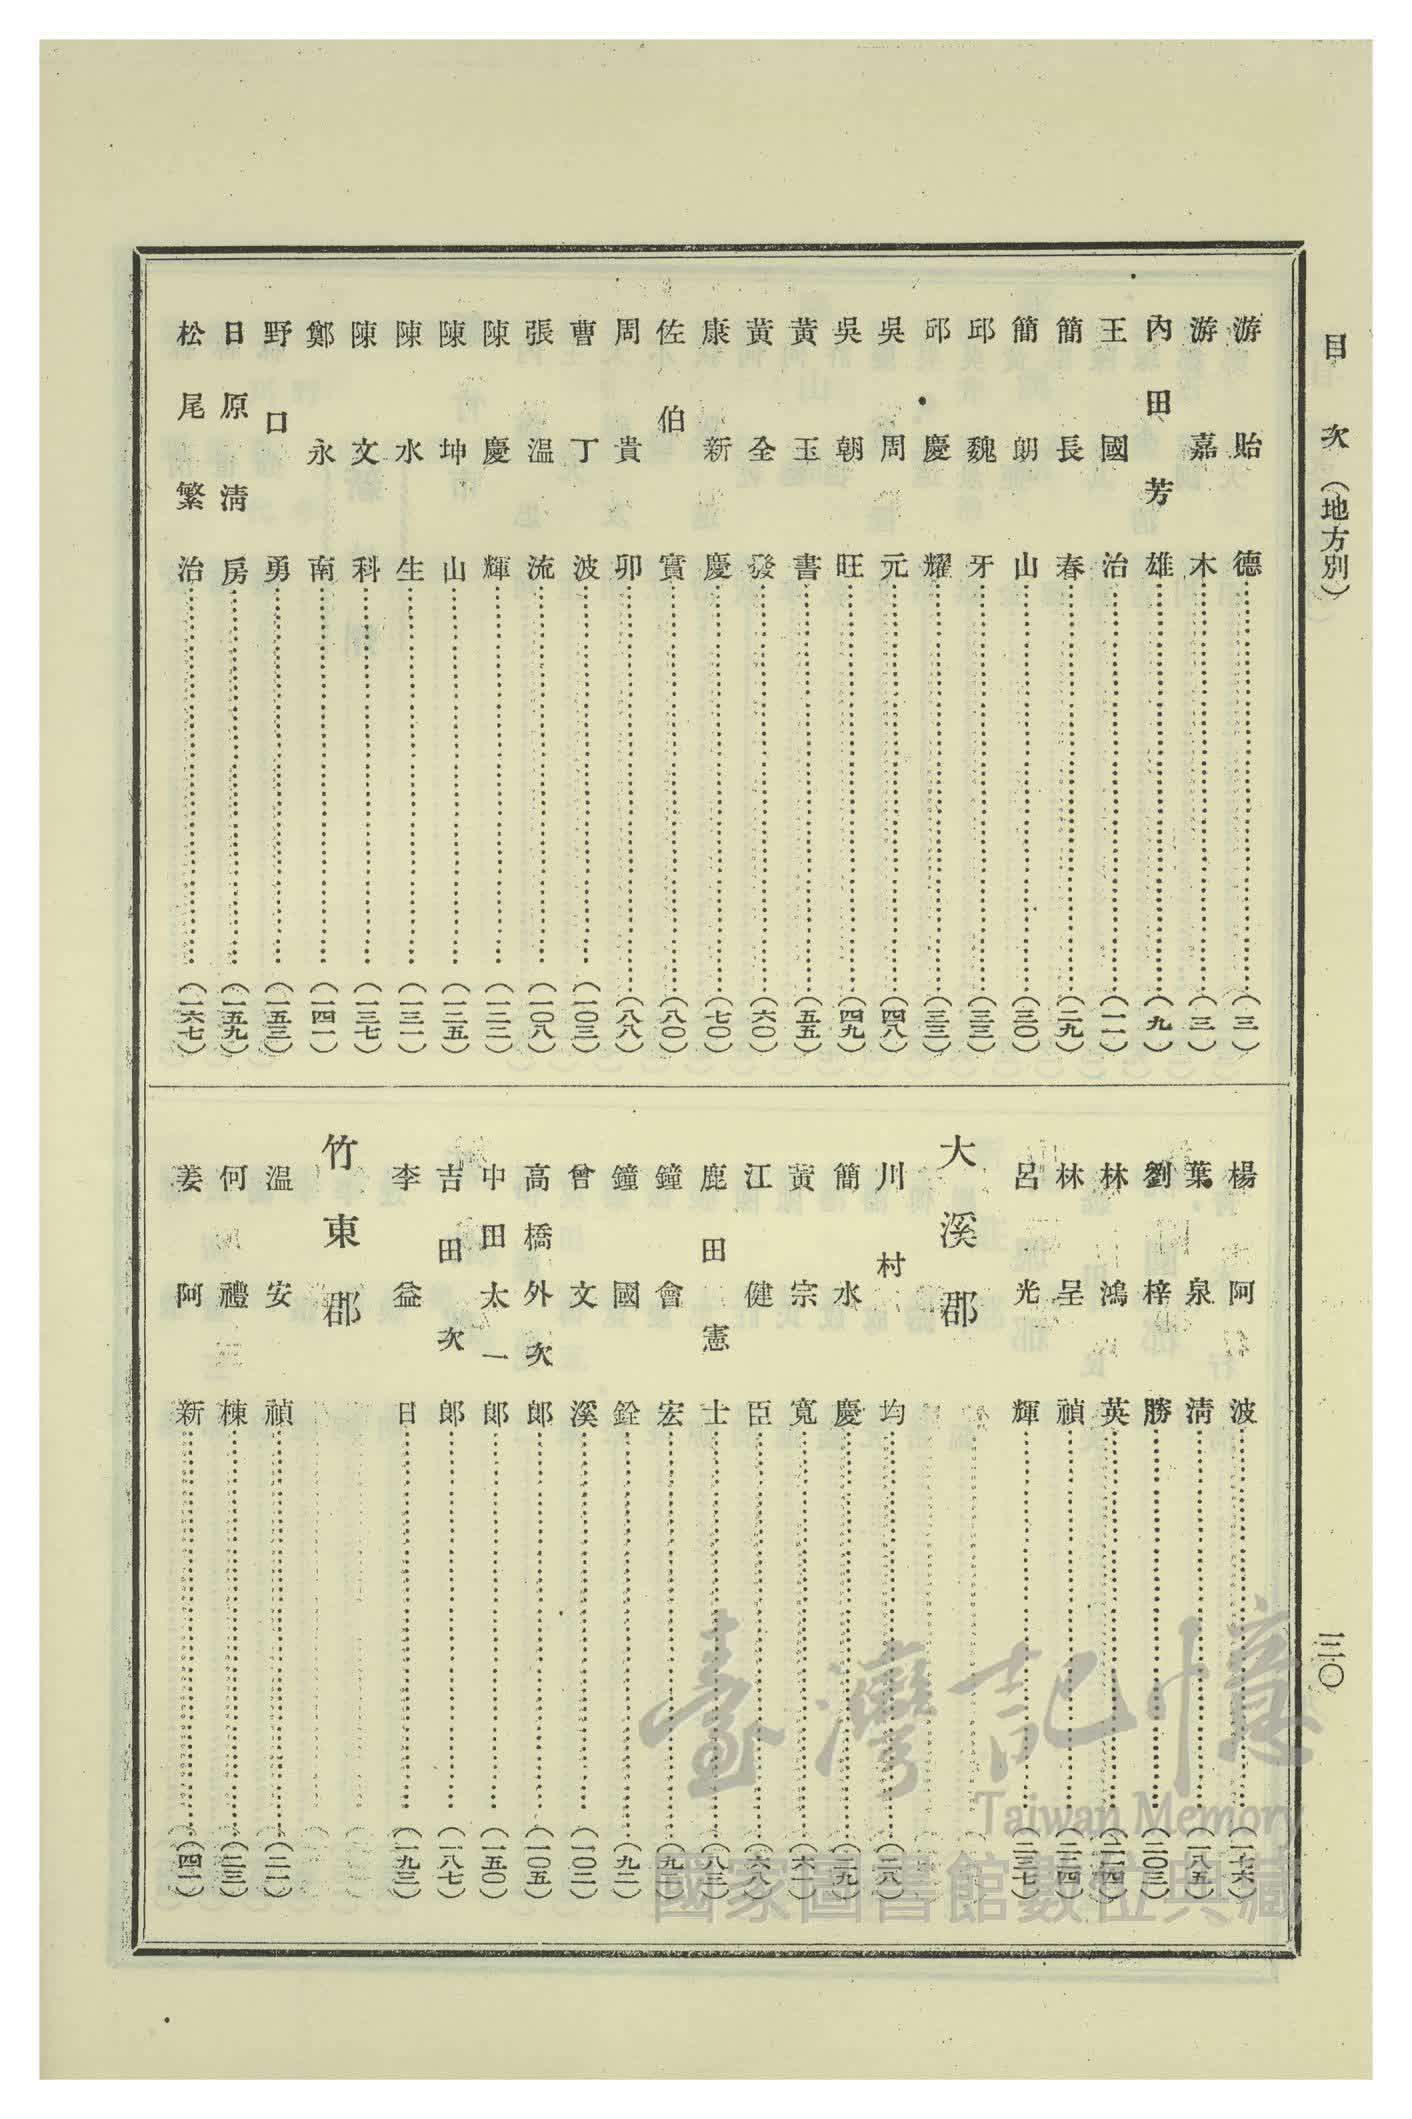 目次（地方別）
三〇
游貽德（三）
游嘉木（三）
內田芳雄（九）
王國治（一一）
簡長春（二九）
簡朗山（三〇）
邱魏牙（三三）
邱慶耀（三三）
吳周元（四八）
吳朝旺（四九）
黃玉書（五五）
黃全發（六〇）
康新慶（七〇）
佐伯實（八〇）
周貴卯（八八）
曹丁波（一〇三）
張溫流（一〇八）
陳慶輝（一二二）
陳坤山（一二五）
陳水生（一三一）
陳文科（一三七）
鄭永南（一四一）
野口勇（一五三）
日原淸房（一五九）
松尾繁治（一六七）
楊阿波（一七六）
葉泉淸（一八五）
劉梓勝（二〇三）
林鴻英
林呈禎（二二四）
呂光輝（二三七）
大溪郡
川村均（二八）
簡水慶（二九）
黃宗寬（六一）
江健臣（六八）
鹿田憲士（八三）
鐘會宏
鐘國銓（九二）
曾文溪（一〇二）
高橋外次郎（一〇五）
中田太一郎（一五〇）
吉田次郎（一八七）
李益日（一九三）
竹東郡
溫安禎（二一）
何禮棟（二三）
姜阿新（四一）
臺灣記憶
Taiwan Memory
國家圖書館數位典藏